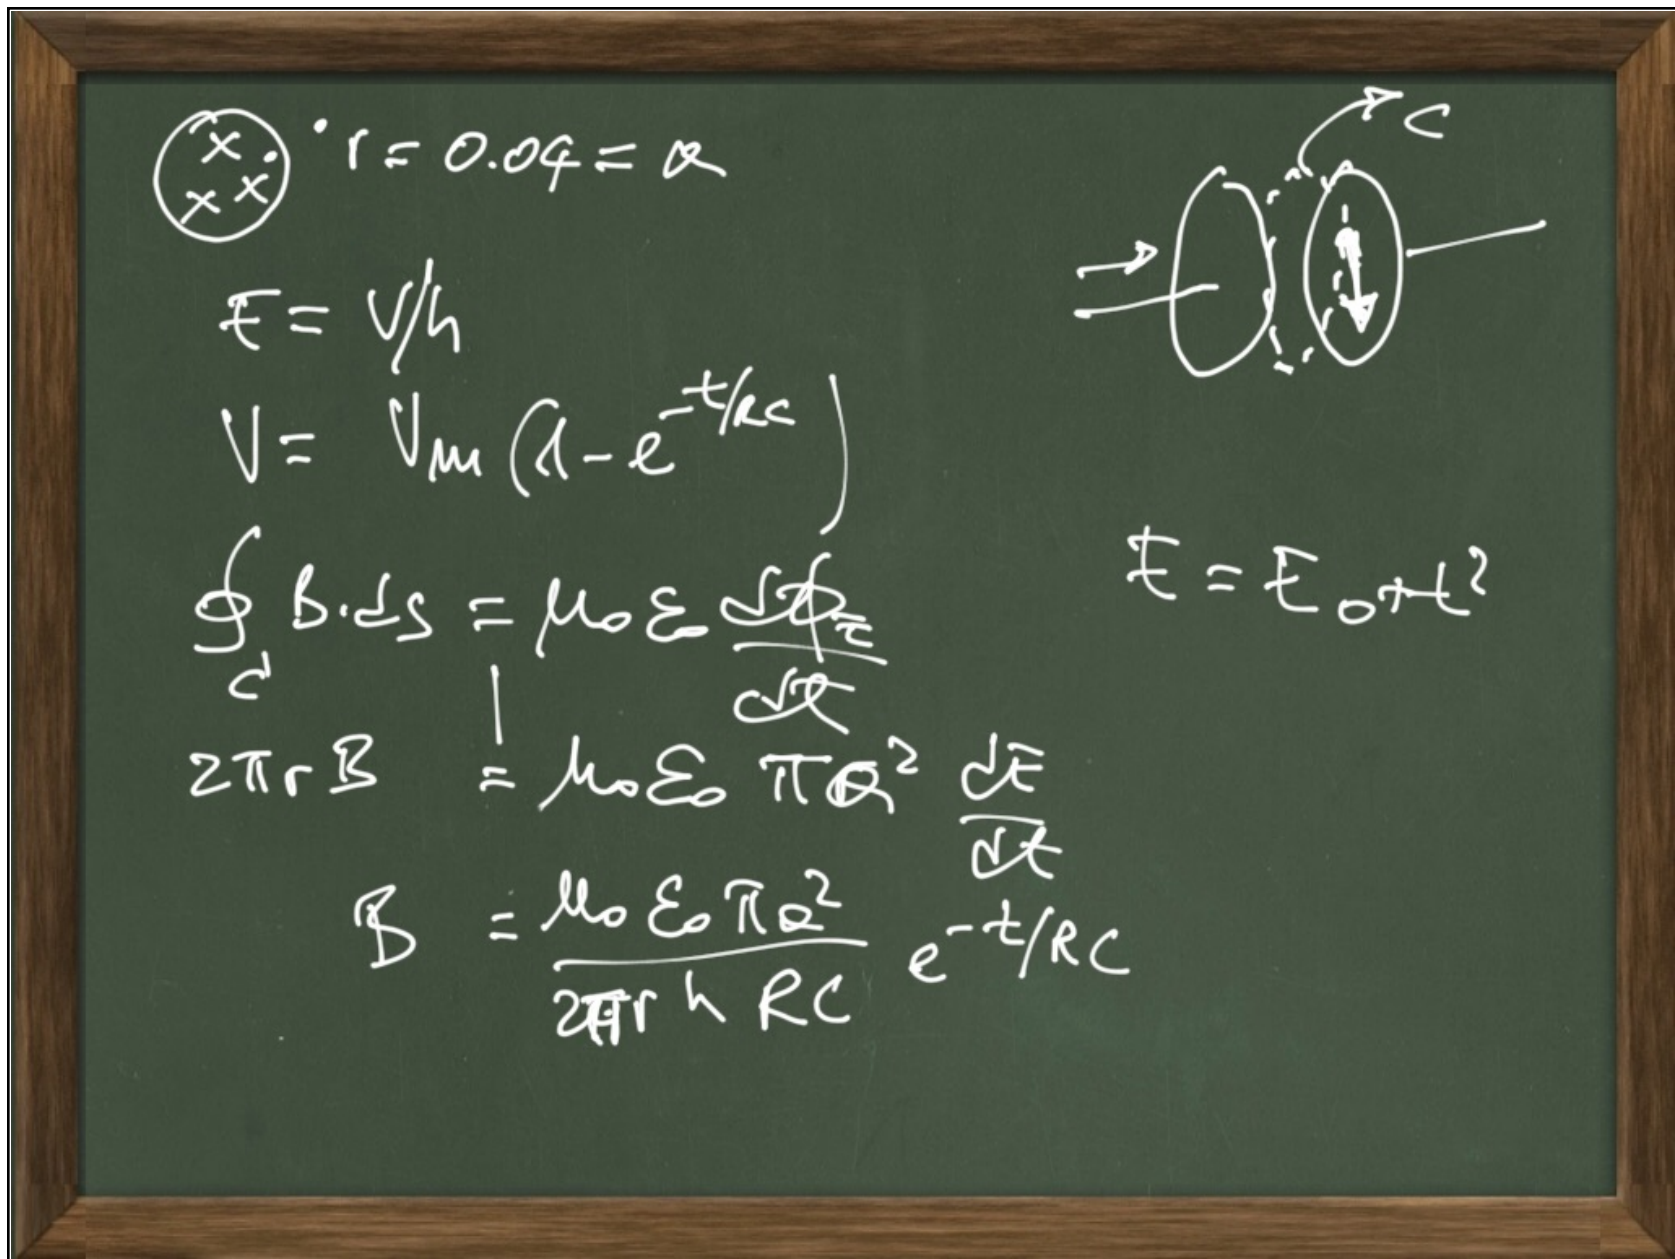 x x x r = 0.04 = a
C
E = V/h
V = Vm (1 - e^{-t/RC})
∮_C B·ds = μ₀ ε₀ dΦ_E/dt
E = E₀ + t²
2πr B = μ₀ ε₀ πa² dE/dt
B = μ₀ ε₀ πa² / 2πr h RC e^{-t/RC}